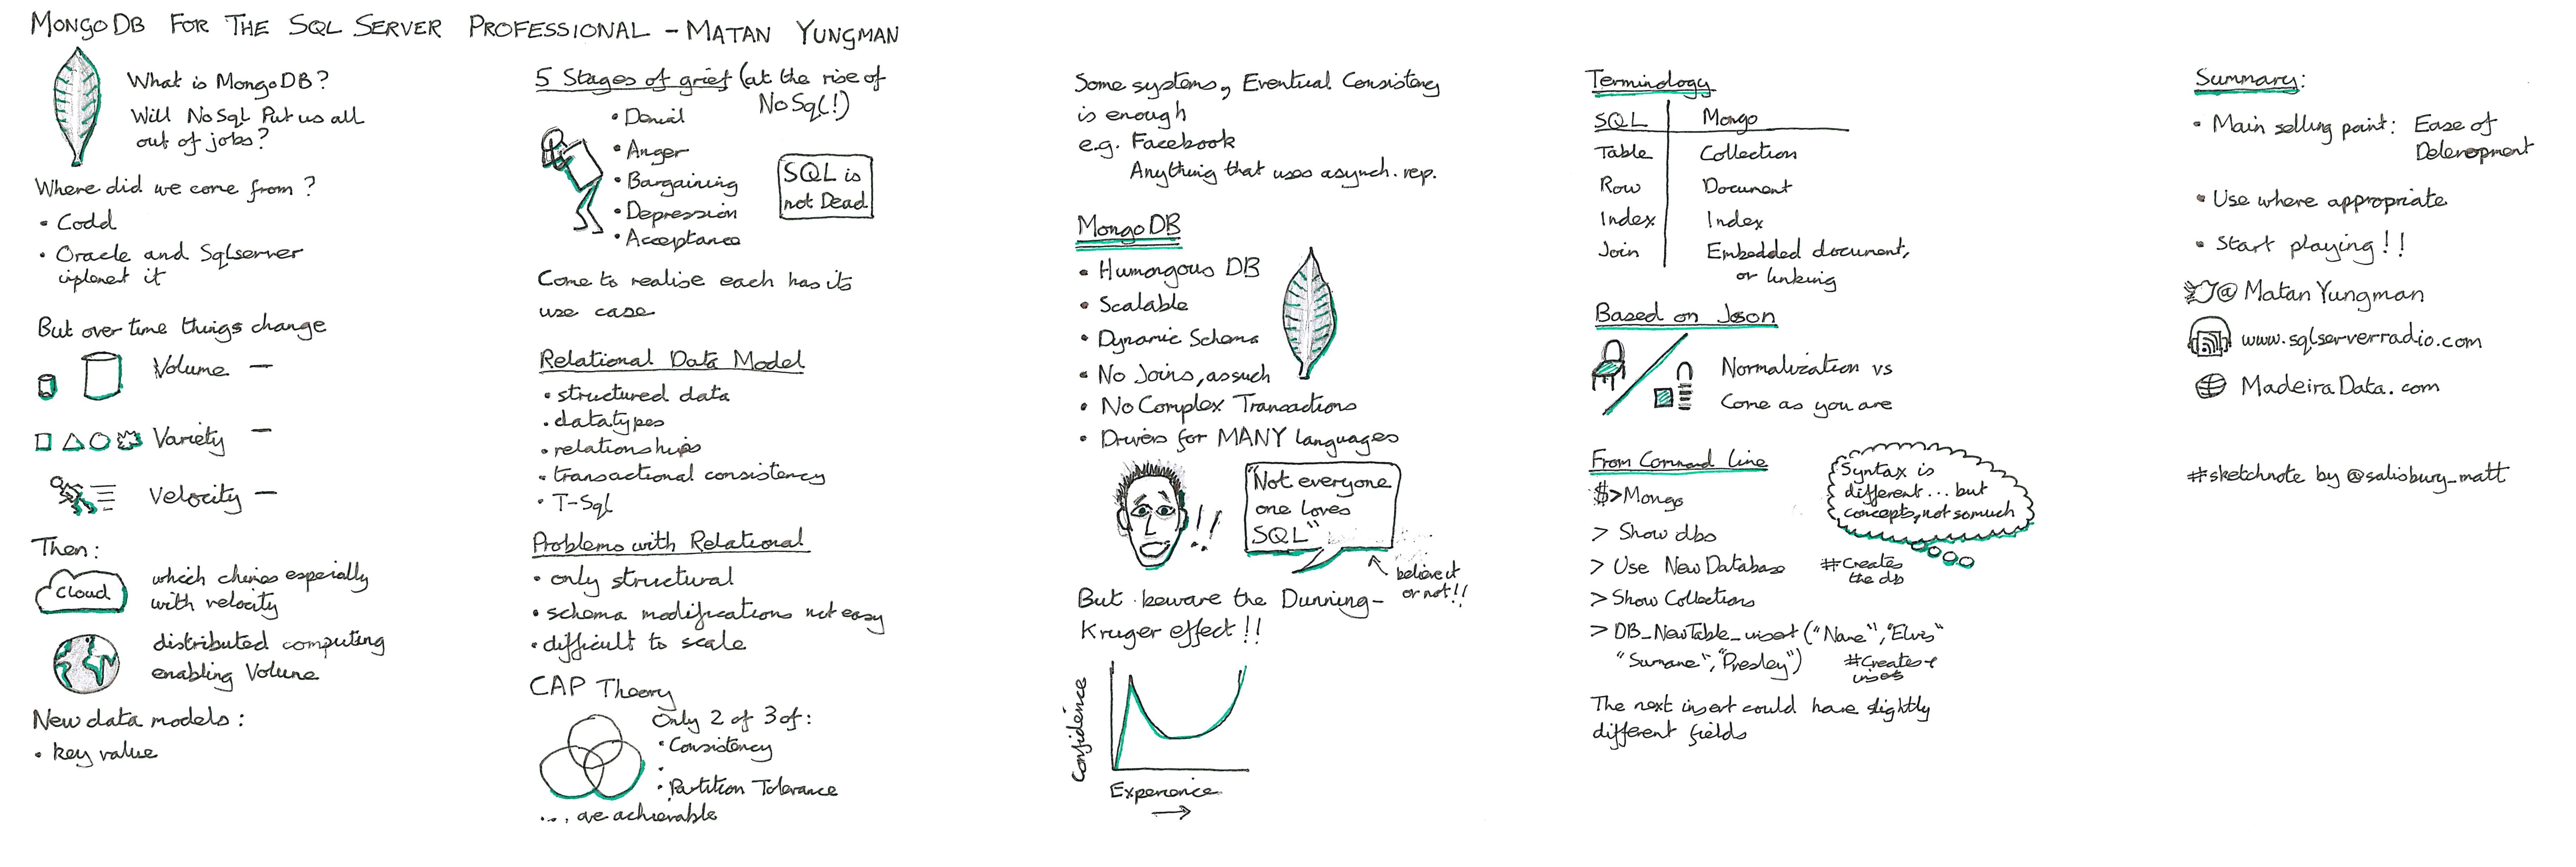 MONGODB FOR THE SQL SERVER PROFESSIONAL - MATAN YUNGMAN
What is MongoDB?
Will NoSql Put us all
out of jobs?
Where did we come from?
• Codd
• Oracle and Sqlserver
implement it
But over time things change
Volume -
Variety -
Velocity -
Then:
Cloud
which chimes especially
with velocity
distributed computing
enabling Volume
New data models:
• key value
5 Stages of grief (at the rise of
NoSql!)
• Denial
• Anger
• Bargaining
• Depression
• Acceptance
SQL is
not Dead
Come to realise each has its
use case
Relational Data Model
• structured data
• datatypes
• relationships
• transactional consistency
• T-Sql
Problems with Relational
• only structural
• schema modifications not easy
• difficult to scale
CAP Theory
Only 2 of 3 of:
• Consistency
•
• Partition Tolerance
.... are achievable
Some systems, Eventual Consistency
is enough
e.g. Facebook
Anything that uses asynch. rep.
MongoDB
• Humongous DB
• Scalable
• Dynamic Schema
• No Joins, as such
• No Complex Transactions
• Drivers for MANY languages
!!
"Not everyone
one loves
SQL"
believe it
or not!!
But beware the Dunning-
Kruger effect!!
Confidence
Experience
Terminology
SQL Mongo
Table Collection
Row Document
Index Index
Join Embedded document,
or linking
Based on Json
Normalization vs
Come as you are
From Command line
$>Mongo
> Show dbs
> Use NewDatabase #Creates
the db
> Show Collections
> DB_NewTable_insert ("Name","Elvis"
"Surname","Presley") #Creates +
inserts
Syntax is
different... but
concepts, not so much
The next insert could have slightly
different fields
Summary:
• Main selling point: Ease of
Development
• Use where appropriate
• Start playing!!
@MatanYungman
www.sqlserverradio.com
MadeiraData.com
#sketchnote by @salisbury_matt